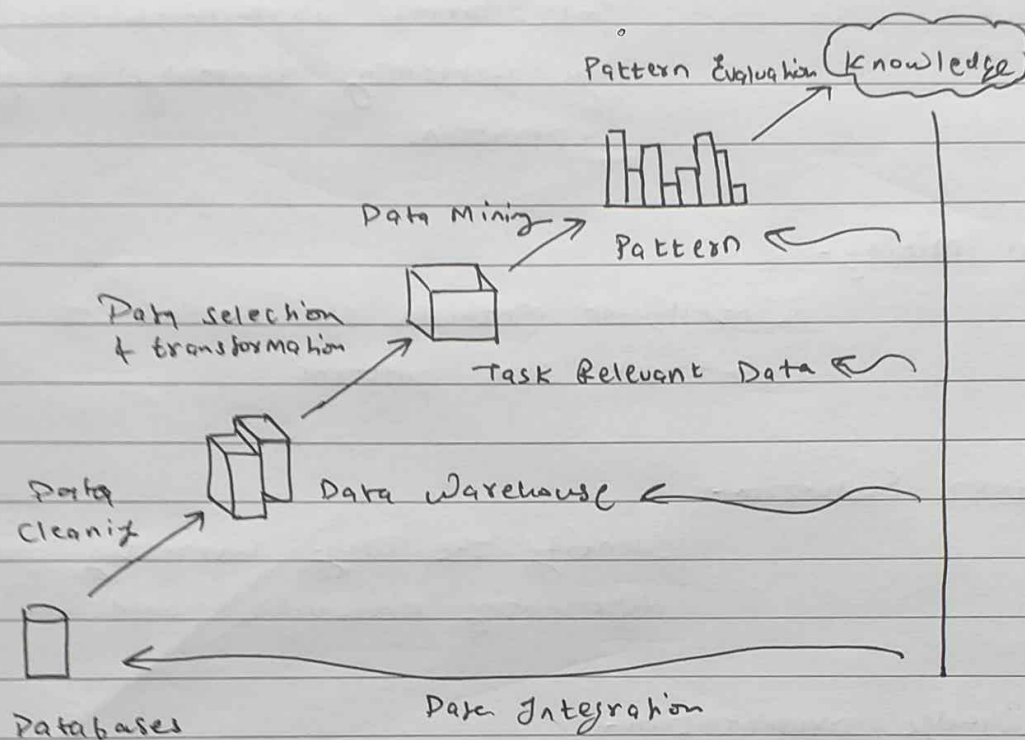 Pattern Evaluation
Knowledge
Data Mining
Pattern
Data selection
& transformation
Task Relevant Data
Data
Cleaning
Data Warehouse
Databases
Data Integration